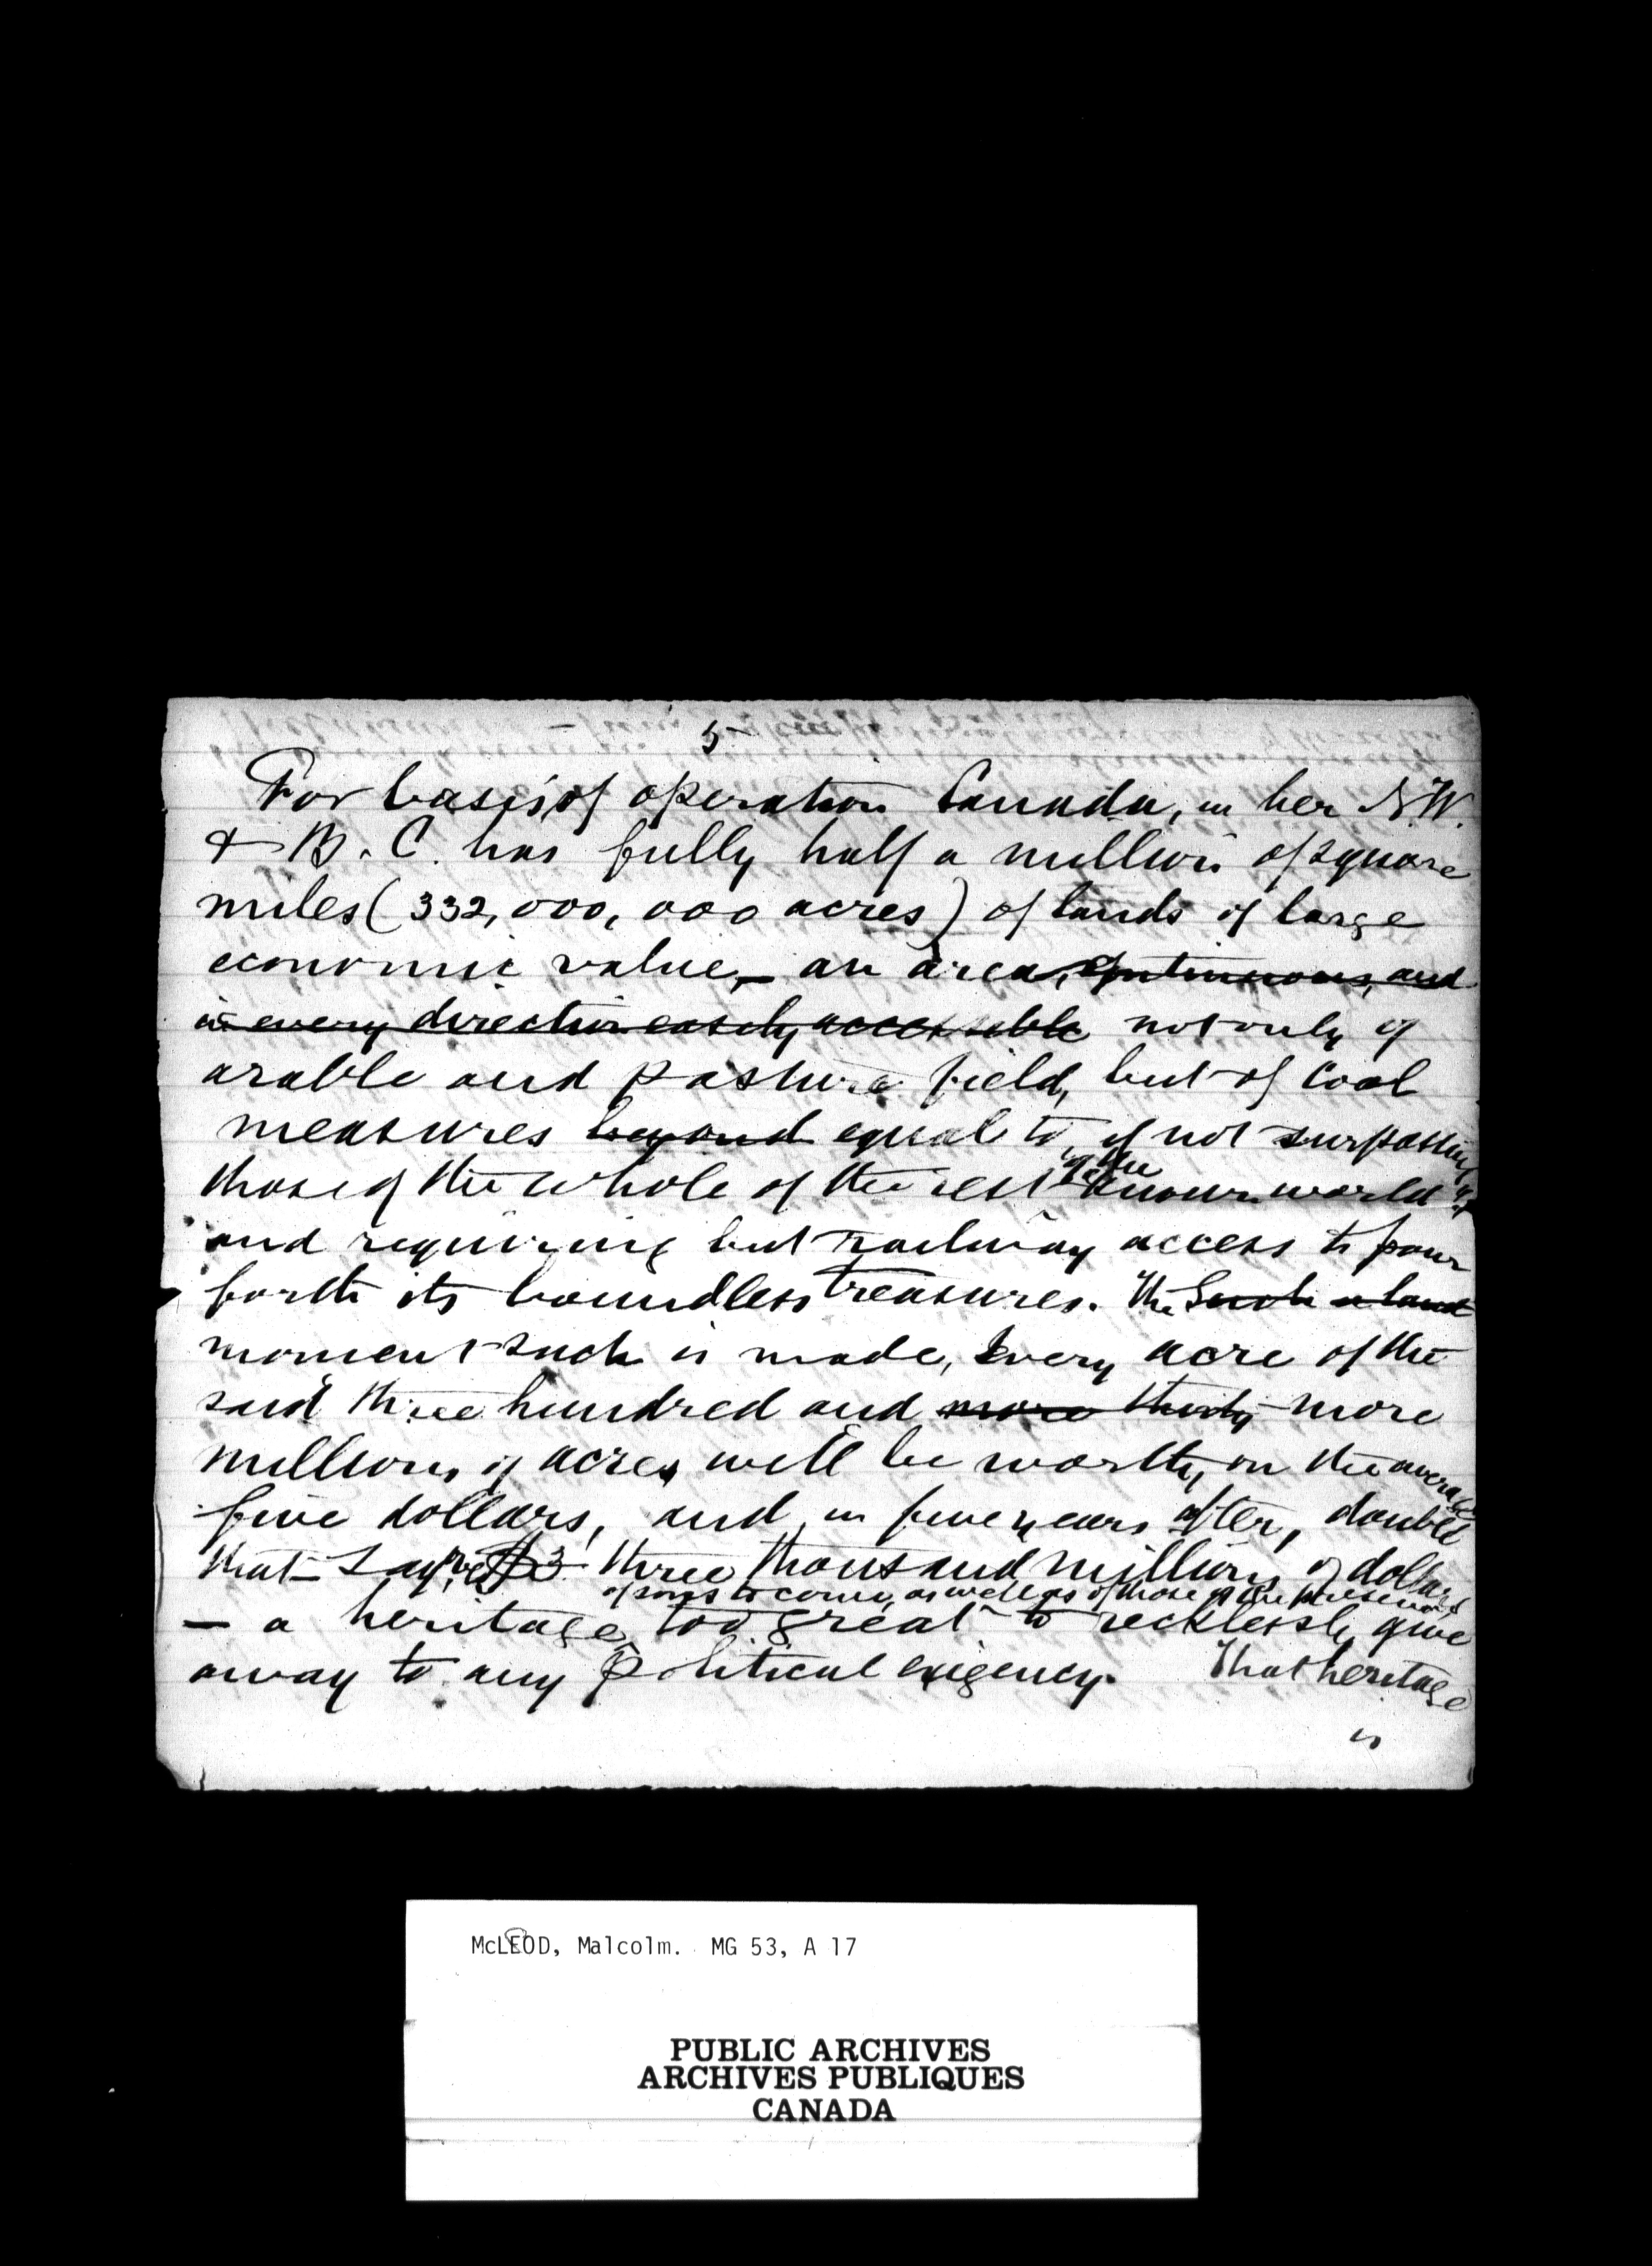 5
For basis of operation Canada, in her N.W.
& B. C. has fully half a million of square
miles (332,000,000 acres) of lands of large
economic value, – an area, continuous, and
in every direction easily accessible not only of
arable and pasture field, but of coal
measures beyond equal to, if not surpassing
those of the whole of the rest of the known world
and requiring but railway access to pour
forth its boundless treasures. The Such a land
moment such is made, every acre of the
said three hundred and more thirty more
millions of acres will be worth, on the average
five dollars, and, in five years after, double
that – say $3 three thousand millions of dollars
of sons to come, as well as of those of the present
– a heritage, too great to recklessly give
away to any political exigency. That heritage
is
McLEOD, Malcolm. MG 53, A 17
PUBLIC ARCHIVES
ARCHIVES PUBLIQUES
CANADA